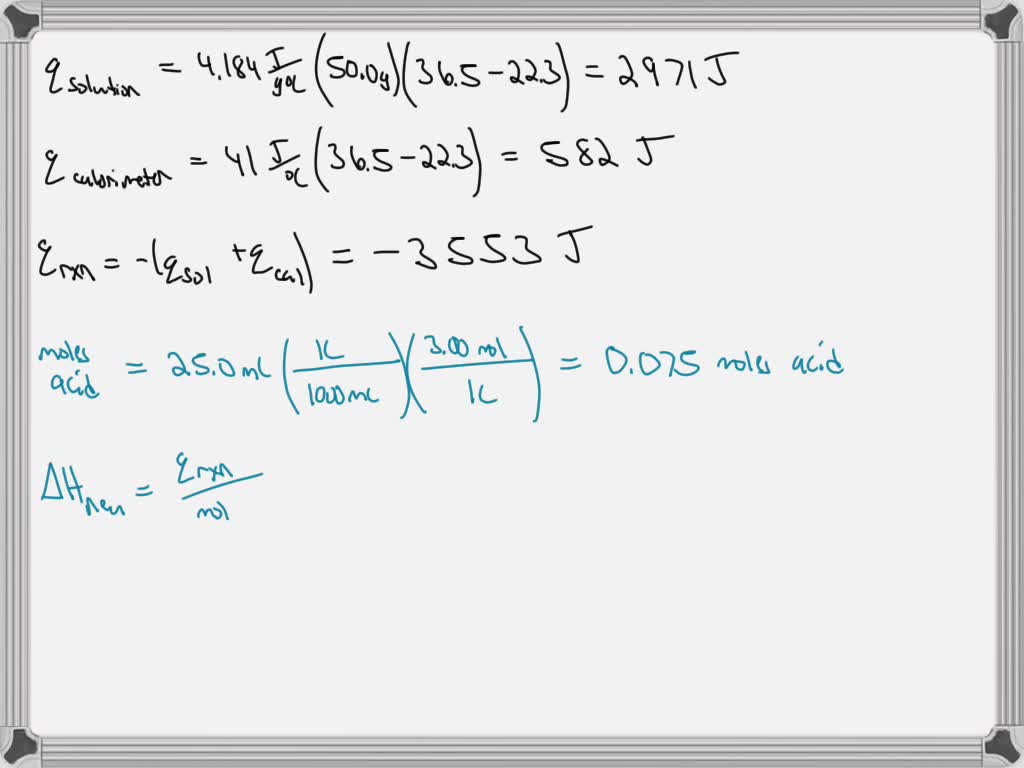 q solution = 4.184 J/g°C (50.0g)(36.5-22.3) = 2971 J
q calorimeter = 41 J/°C (36.5-22.3) = 582 J
q rxn = -(q sol + q cal) = -3553 J
moles acid = 25.0 mL (1L/1000 mL)(3.00 mol/1L) = 0.075 moles acid
ΔH neu = q rxn/mol